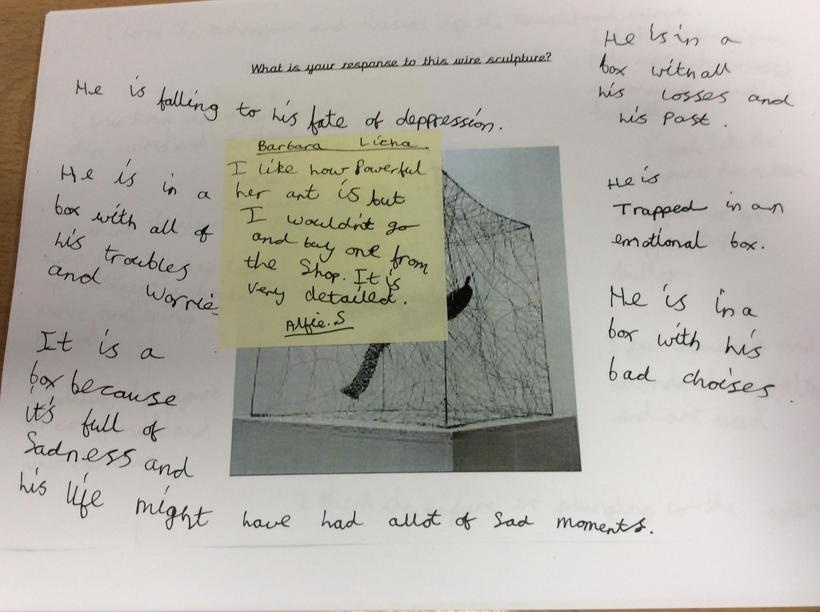 What is your response to this wire sculpture?
He is falling to his fate of deppression.
He is in a
box with all of
his troubles
and worrie
It is a
box because
it's full of
Sadness and
his life might have had allot of Sad moments.
Barbara Licha.
I like how Powerful
her art is but
I wouldn't go
and buy one from
the Shop. It is
very detailed.
Alfie.S
He is in a
box with all
his losses and
his Past.
He is
Trapped in an
emotional box.
He is in a
box with his
bad choises.